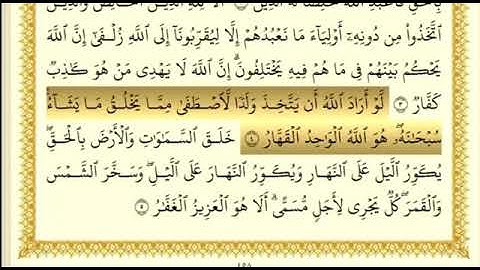 بِالْحَقِّ فَاعْبُدِ اللَّهَ مُخْلِصًا لَّهُ الدِّينَ ۝٢ أَلَا لِلَّهِ الدِّينُ الْخَالِصُ وَالَّذِينَ
ٱتَّخَذُوا۟ مِن دُونِهِۦٓ أَوْلِيَآءَ مَا نَعْبُدُهُمْ إِلَّا لِيُقَرِّبُونَآ إِلَى ٱللَّهِ زُلْفَىٰٓ إِنَّ ٱللَّهَ
يَحْكُمُ بَيْنَهُمْ فِى مَا هُمْ فِيهِ يَخْتَلِفُونَ ۗ إِنَّ ٱللَّهَ لَا يَهْدِى مَنْ هُوَ كَٰذِبٌ
كَفَّارٌ ۝٣ لَّوْ أَرَادَ ٱللَّهُ أَن يَتَّخِذَ وَلَدًا لَّٱصْطَفَىٰ مِمَّا يَخْلُقُ مَا يَشَآءُ ۚ
سُبْحَٰنَهُۥ ۖ هُوَ ٱللَّهُ ٱلْوَٰحِدُ ٱلْقَهَّارُ ۝٤ خَلَقَ ٱلسَّمَٰوَٰتِ وَٱلْأَرْضَ بِٱلْحَقِّ ۖ
يُكَوِّرُ ٱلَّيْلَ عَلَى ٱلنَّهَارِ وَيُكَوِّرُ ٱلنَّهَارَ عَلَى ٱلَّيْلِ ۖ وَسَخَّرَ ٱلشَّمْسَ
وَٱلْقَمَرَ ۖ كُلٌّ يَجْرِى لِأَجَلٍ مُّسَمًّى ۗ أَلَا هُوَ ٱلْعَزِيزُ ٱلْغَفَّٰرُ ۝٥
٤٥٨